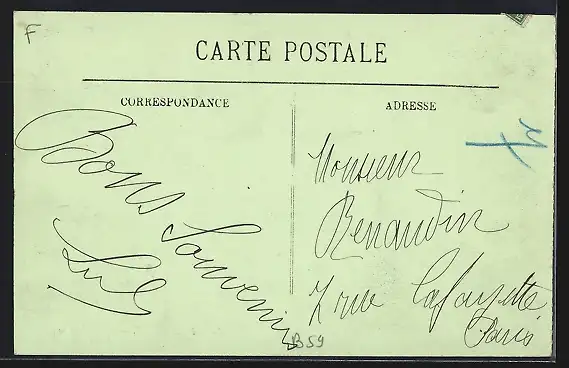 F
CARTE POSTALE
CORRESPONDANCE
Bons Souvenirs
ADRESSE
Monsieur
Renaudin
7 rue Lafayette
Paris
B59